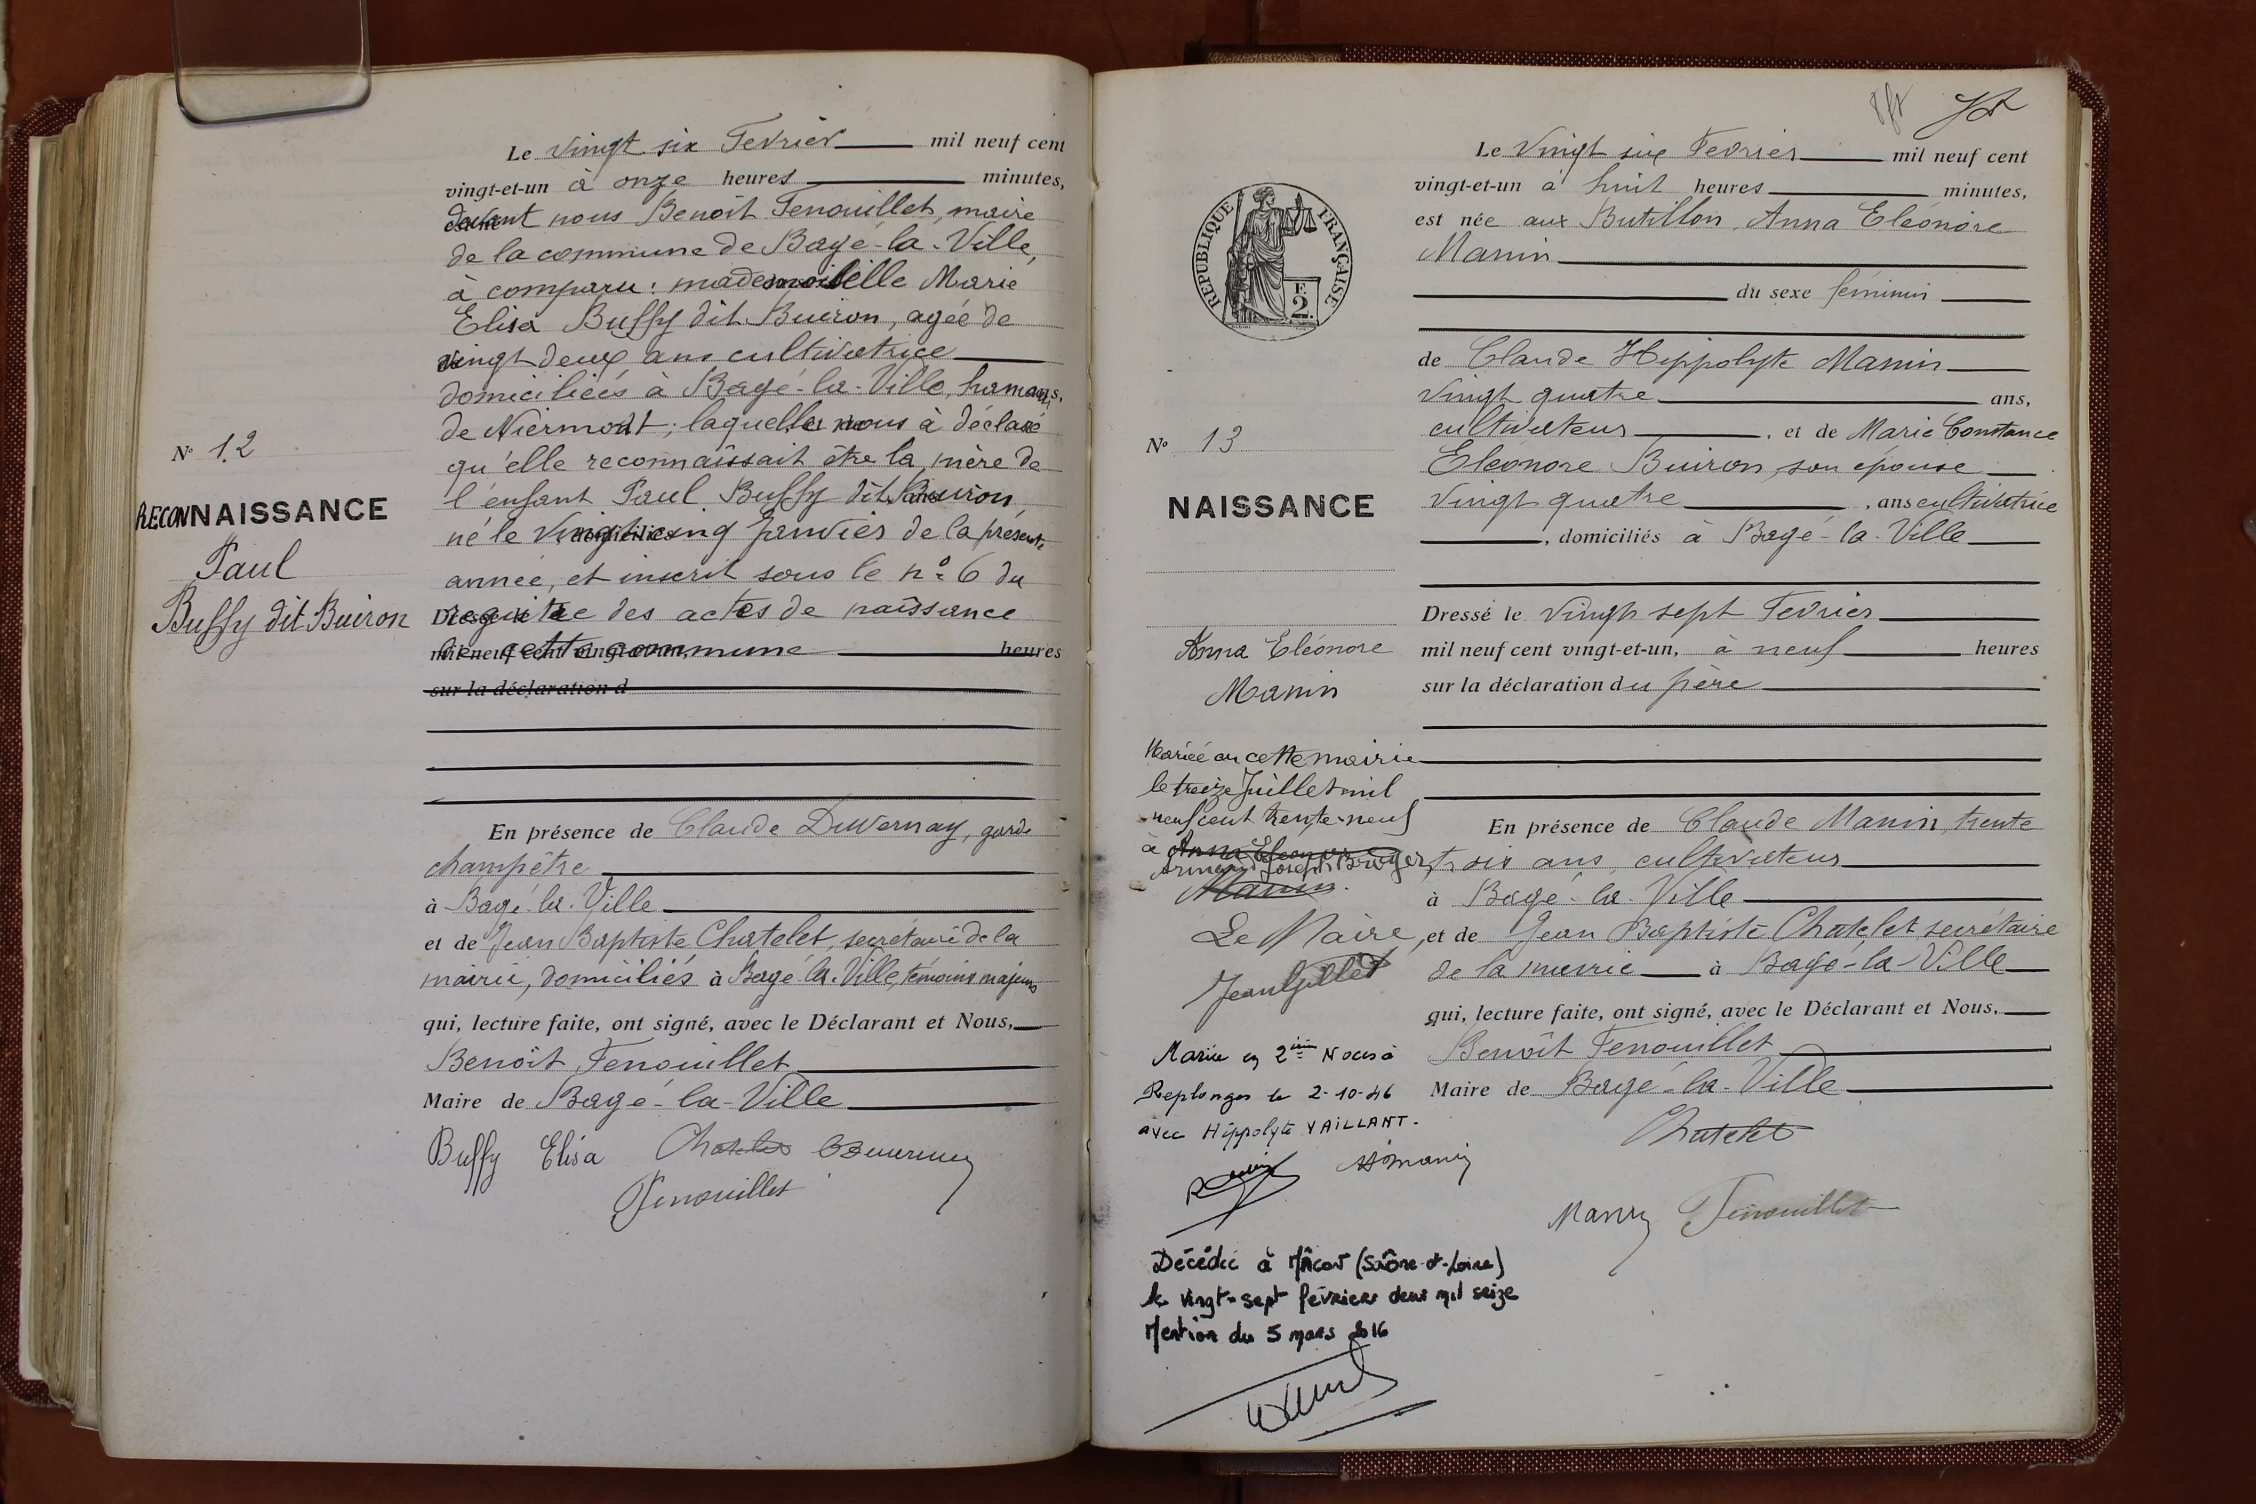 Le vingt six Fevrier mil neuf cent
vingt-et-un à onze heures minutes,
devant nous Benoît Fenouillet, maire
de la commune de Bagé-la-Ville,
à comparu: mademoiselle Marie
Elisa Buffy dit Buiron, agée de
vingt deux ans cultivatrice
domiciliées à Bagé-la-Ville, hameaux,
de Niermont; laquelle nous à déclaré
qu'elle reconnaissait être la mère de
l'enfant Paul Buffy dit Buiron,
né le vingt cinq Janvier de la présente
année, et inscrit sous le n° 6 du
registre des actes de naissance
de cette commune heures
sur la déclaration d
N° 12
RECONNAISSANCE
Paul
Buffy dit Buiron
En présence de Claude Duvernay, garde
champêtre
à Bagé-la-Ville
et de Jean Baptiste Chatelet, secrétaire de la
mairie, domiciliés à Bagé-la-Ville, témoins majeurs
qui, lecture faite, ont signé, avec le Déclarant et Nous,
Benoît Fenouillet
Maire de Bagé-la-Ville
Buffy Elisa Chatelet Duvernay
Fenouillet
RÉPUBLIQUE FRANÇAISE
F.
2.
Le vingt six Fevrier mil neuf cent
vingt-et-un à huit heures minutes,
est née aux Butillon, Anna Eléonore
Manin
du sexe féminin
de Claude Hippolyte Manin
vingt quatre ans,
cultivateur, et de Marie Constance
Eléonore Buiron, son épouse
vingt quatre, ans cultivatrice
, domiciliés à Bagé-la-Ville
Dressé le vingt sept Fevrier
mil neuf cent vingt-et-un, à neuf heures
sur la déclaration du père
En présence de Claude Manin, trente
trois ans, cultivateur
à Bagé-la-Ville
et de Jean Baptiste Chatelet, secrétaire
de la mairie à Bagé-la-Ville
qui, lecture faite, ont signé, avec le Déclarant et Nous,
Benoît Fenouillet
Maire de Bagé-la-Ville
Chatelet
Manin Fenouillet
N° 13
NAISSANCE
Anna Eléonore
Manin
Mariée en cette mairie
le treize Juillet mil
neuf cent trente-neuf
à Anna Eléonore
Armand Joseph
Manin.
Le Maire,
Jean Gillet
Mariée en 2ième Noces à
Replonges le 2-10-46
avec Hippolyte VAILLANT.
Décédée à Mâcon (Saône-et-Loire)
le vingt-sept février deux mil seize
Mention du 5 mars 2016